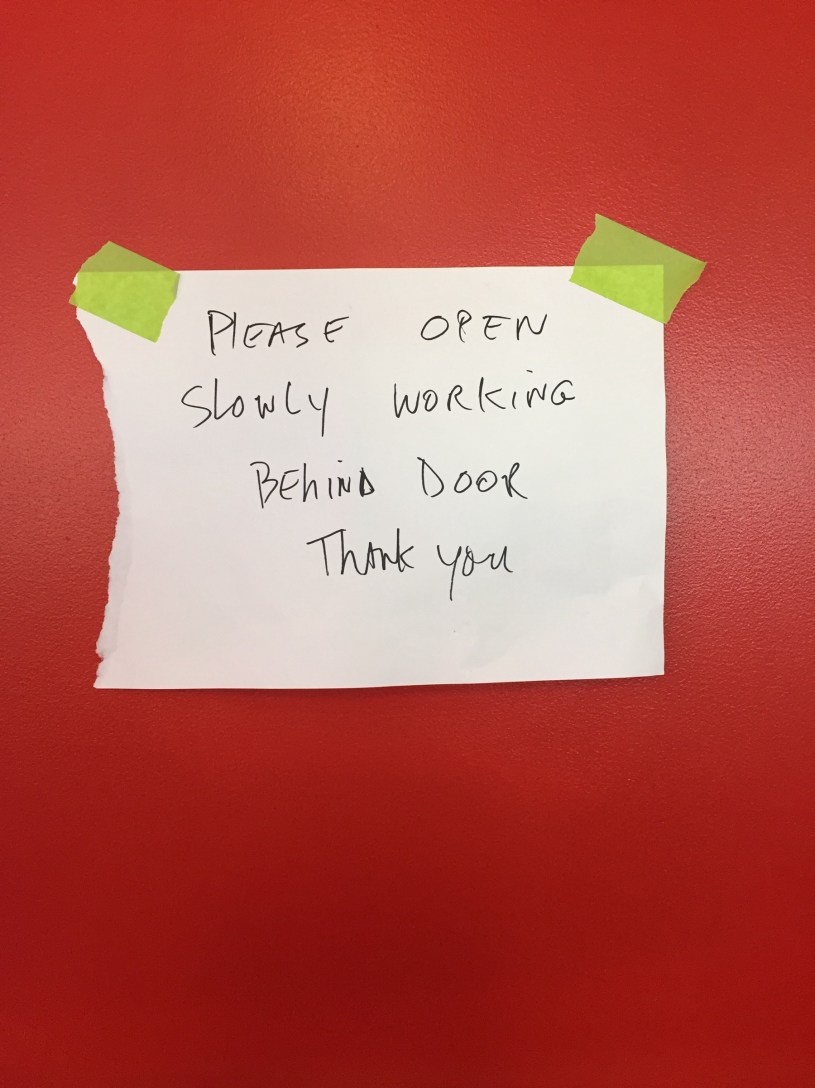 PLEASE OPEN
SLOWLY WORKING
BEHIND DOOR
THANK YOU